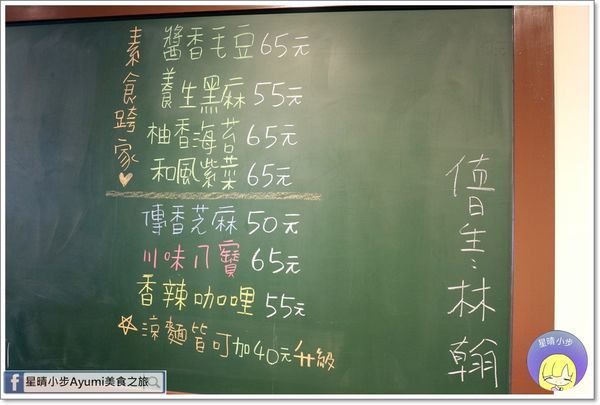 素食跨家♥
醬香毛豆65元
養生黑麻55元
柚香海苔65元
和風紫菜65元
傳香芝麻50元
川味八寶65元
香辣咖哩55元
☆涼麵皆可加40元升級
值日生:林翰
星晴小步Ayumi美食之旅
星晴小步